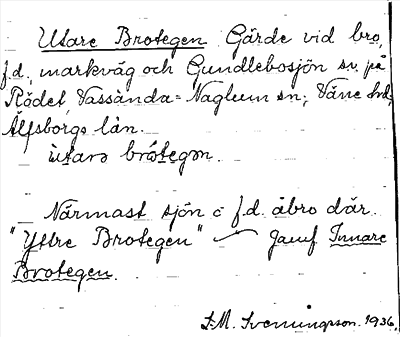 Utare Brotegen Gärde vid bro,
f.d. markväg och Gundlebosjön sv. på
Rödet, Vassända-Naglum sn, Väne hd,
Älfsborgs län.
ùtarə brótegən.
Närmast sjön o f.d. åbro där.
"Yttre Brotegen" ~ Jämf Innare
Brotegen.
S.M. Svenningsson. 1936.